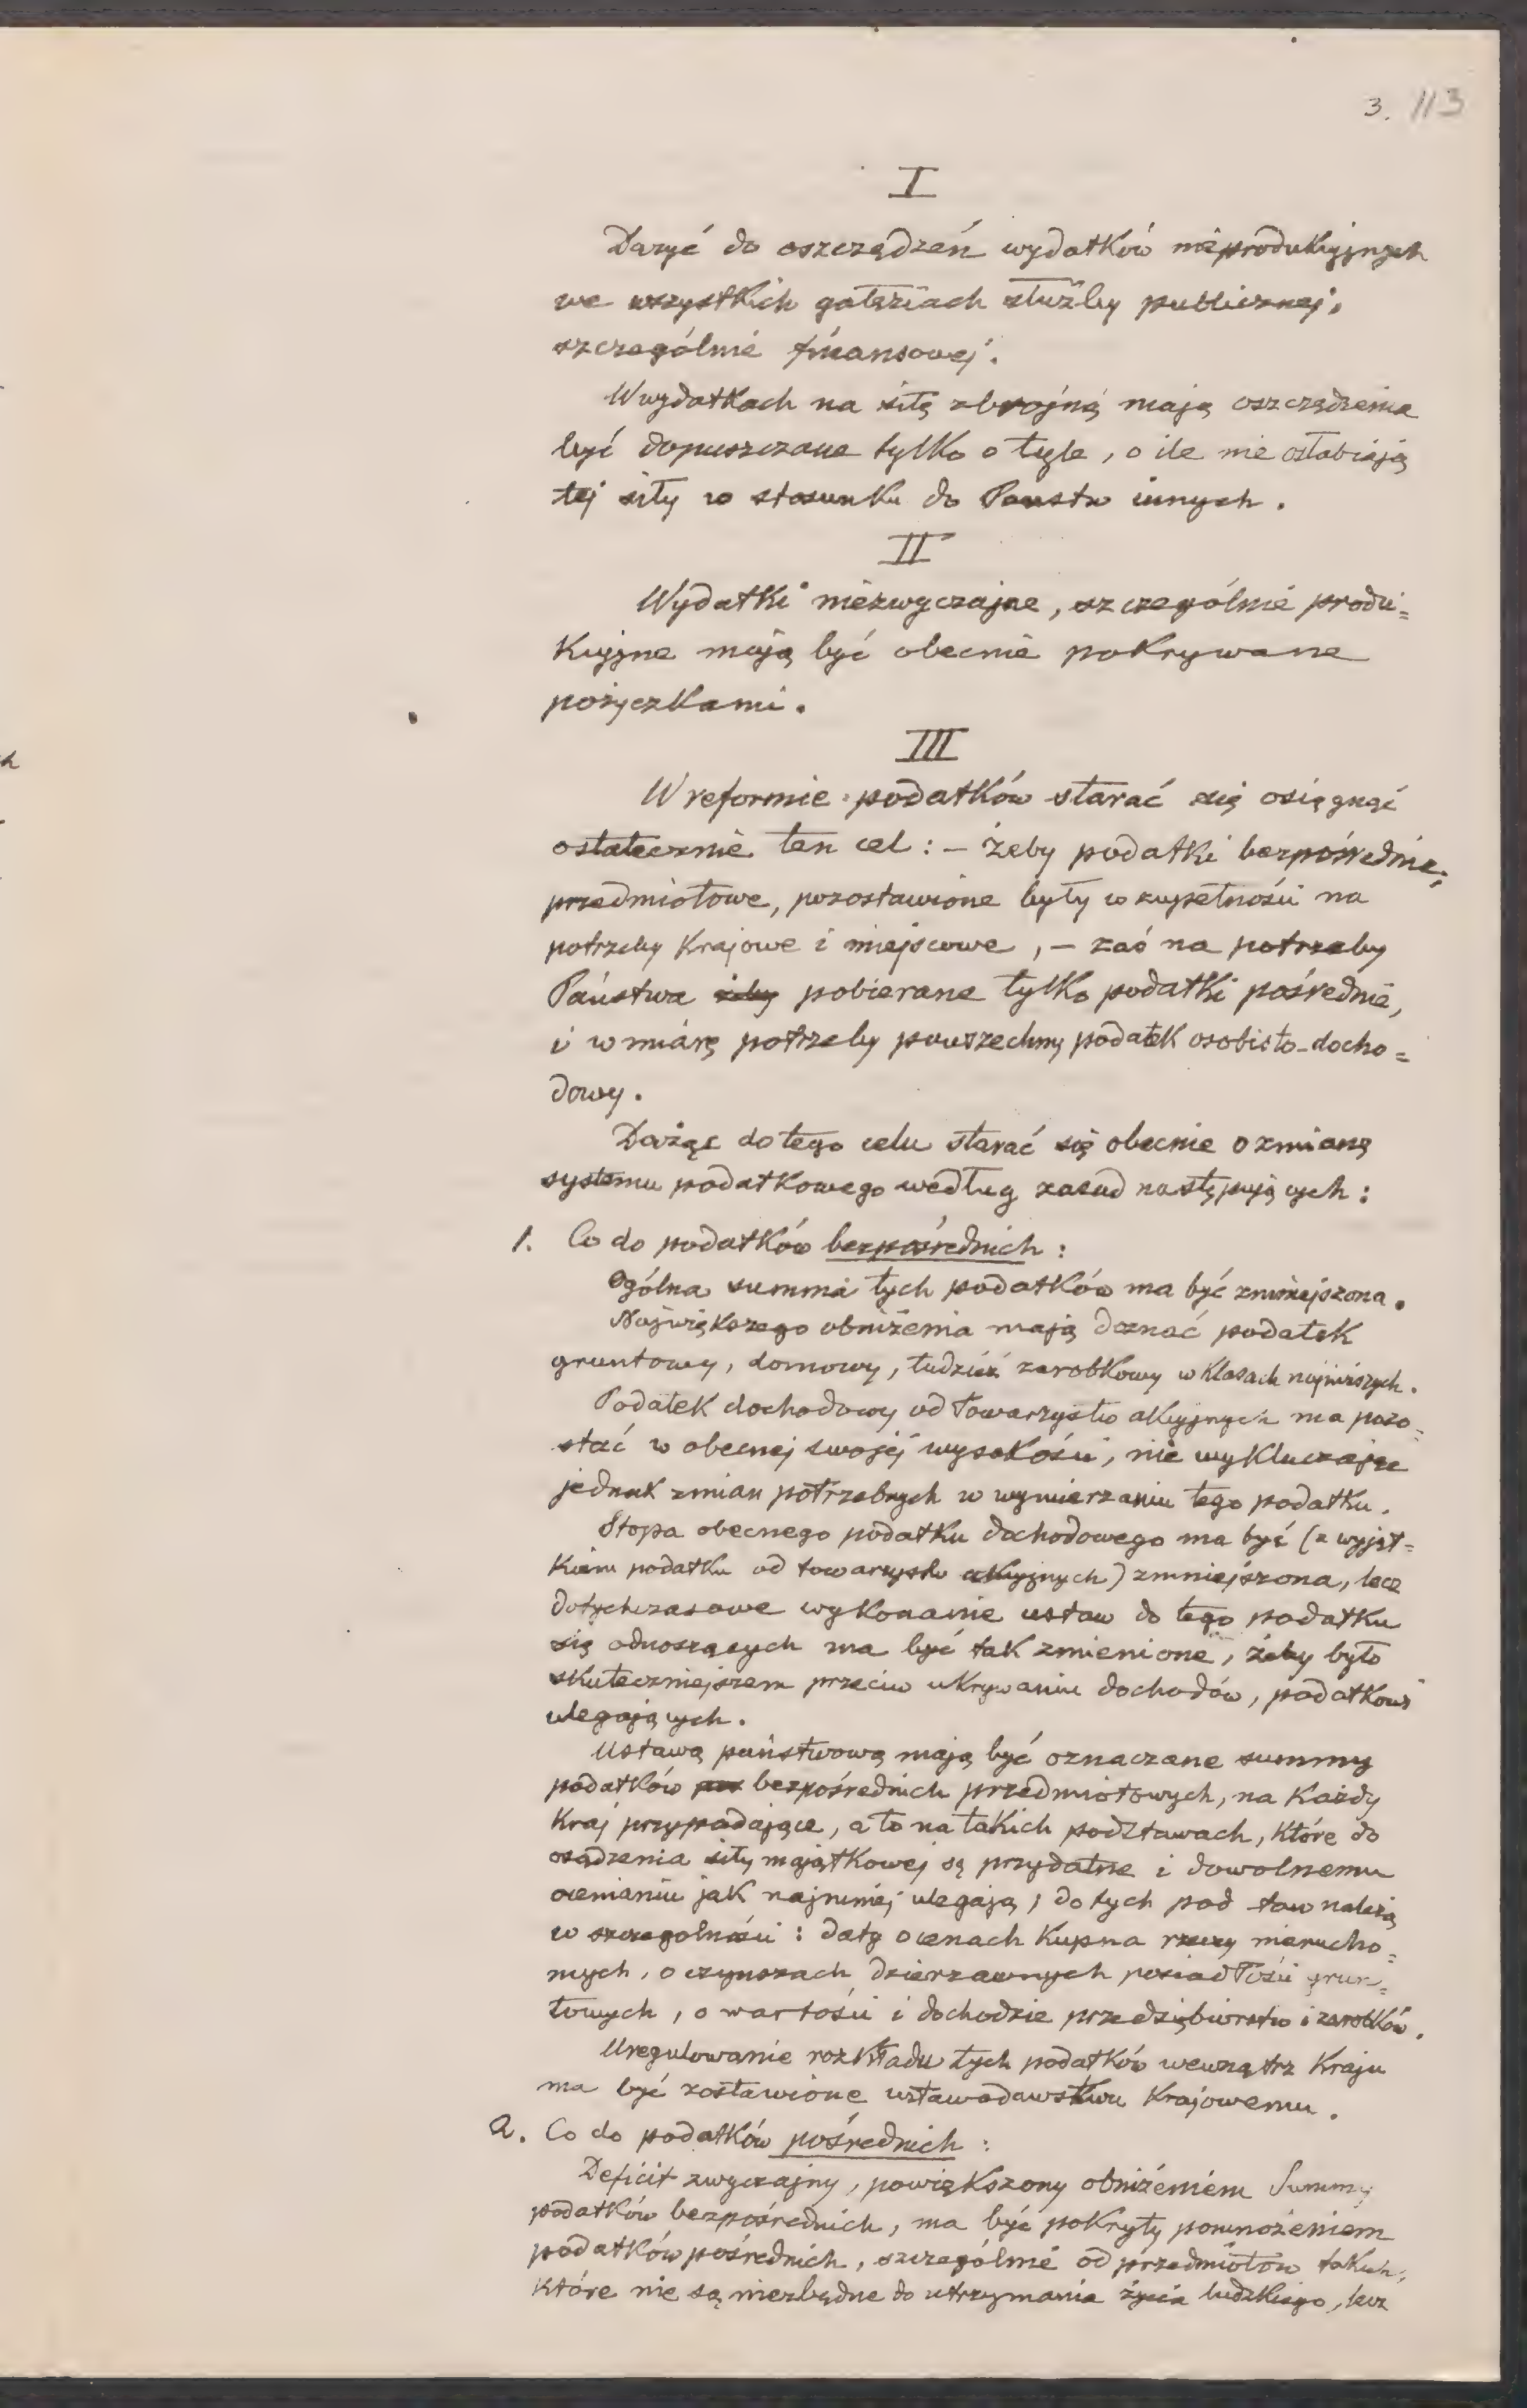 3. 113
I
Dążyć do oszczędzeń wydatków nieprodukcyjnych
we wszystkich gałęziach służby publicznej,
szczególnie finansowej.
W wydatkach na siłę zbrojną mają oszczędzenia
być dopuszczane tylko o tyle, o ile nie osłabiają
tej siły w stosunku do Państw innych.
II
Wydatki niezwyczajne, szczególnie produ=
kcyjne mają być obecnie pokrywane
pożyczkami.
III
W reformie podatków starać się osiągnąć
ostatecznie ten cel: – żeby podatki bezpośrednie,
przedmiotowe, pozostawione były w zupełności na
potrzeby Krajowe i miejscowe, – zaś na potrzeby
Państwa żeby pobierane tylko podatki pośrednie,
i w miarę potrzeby powszechny podatek osobisto-docho=
dowy.
Dążąc do tego celu starać się obecnie o zmianę
systemu podatkowego według zasad następujących:
1. Co do podatków bezpośrednich:
Ogólna summa tych podatków ma być zmniejszona.
Największego obniżenia mają doznać podatek
gruntowy, domowy, tudzież zarobkowy w klasach najniższych.
Podatek dochodowy od Towarzystw akcyjnych ma pozo=
stać w obecnej swojej wysokości, nie wykluczając
jednak zmian potrzebnych w wymierzaniu tego podatku.
Stopa obecnego podatku dochodowego ma być (z wyjąt=
kiem podatku od towarzystw akcyjnych) zmniejszona, lecz
dotychczasowe wykonanie ustaw do tego podatku
się odnoszących ma być tak zmienione, żeby było
skuteczniejszem przeciw ukrywaniu dochodów, podatkowi
ulegających.
Ustawą państwową mają być oznaczane summy
podatków bezpośrednich przedmiotowych, na każdy
Kraj przypadające, a to na takich podstawach, które do
osądzenia siły majątkowej są przydatne i dowolnemu
ocenianiu jak najmniej ulegają; do tych pod staw należą
w szczególności: daty o cenach kupna rzeczy nierucho=
mych, o czynszach dzierzawnych posiadłości grun=
towych, o wartości i dochodzie przedsiębiorstw i zarobków.
Uregulowanie rozkładu tych podatków wewnątrz Kraju
ma być zostawione ustawodawstwu Krajowemu.
2. Co do podatków pośrednich:
Deficit zwyczajny, powiększony obniżeniem Summy
podatków bezpośrednich, ma być pokryty pomnożeniem
podatków pośrednich, szczególnie od przedmiotów takich,
które nie są niezbędne do utrzymania życia ludzkiego, lecz